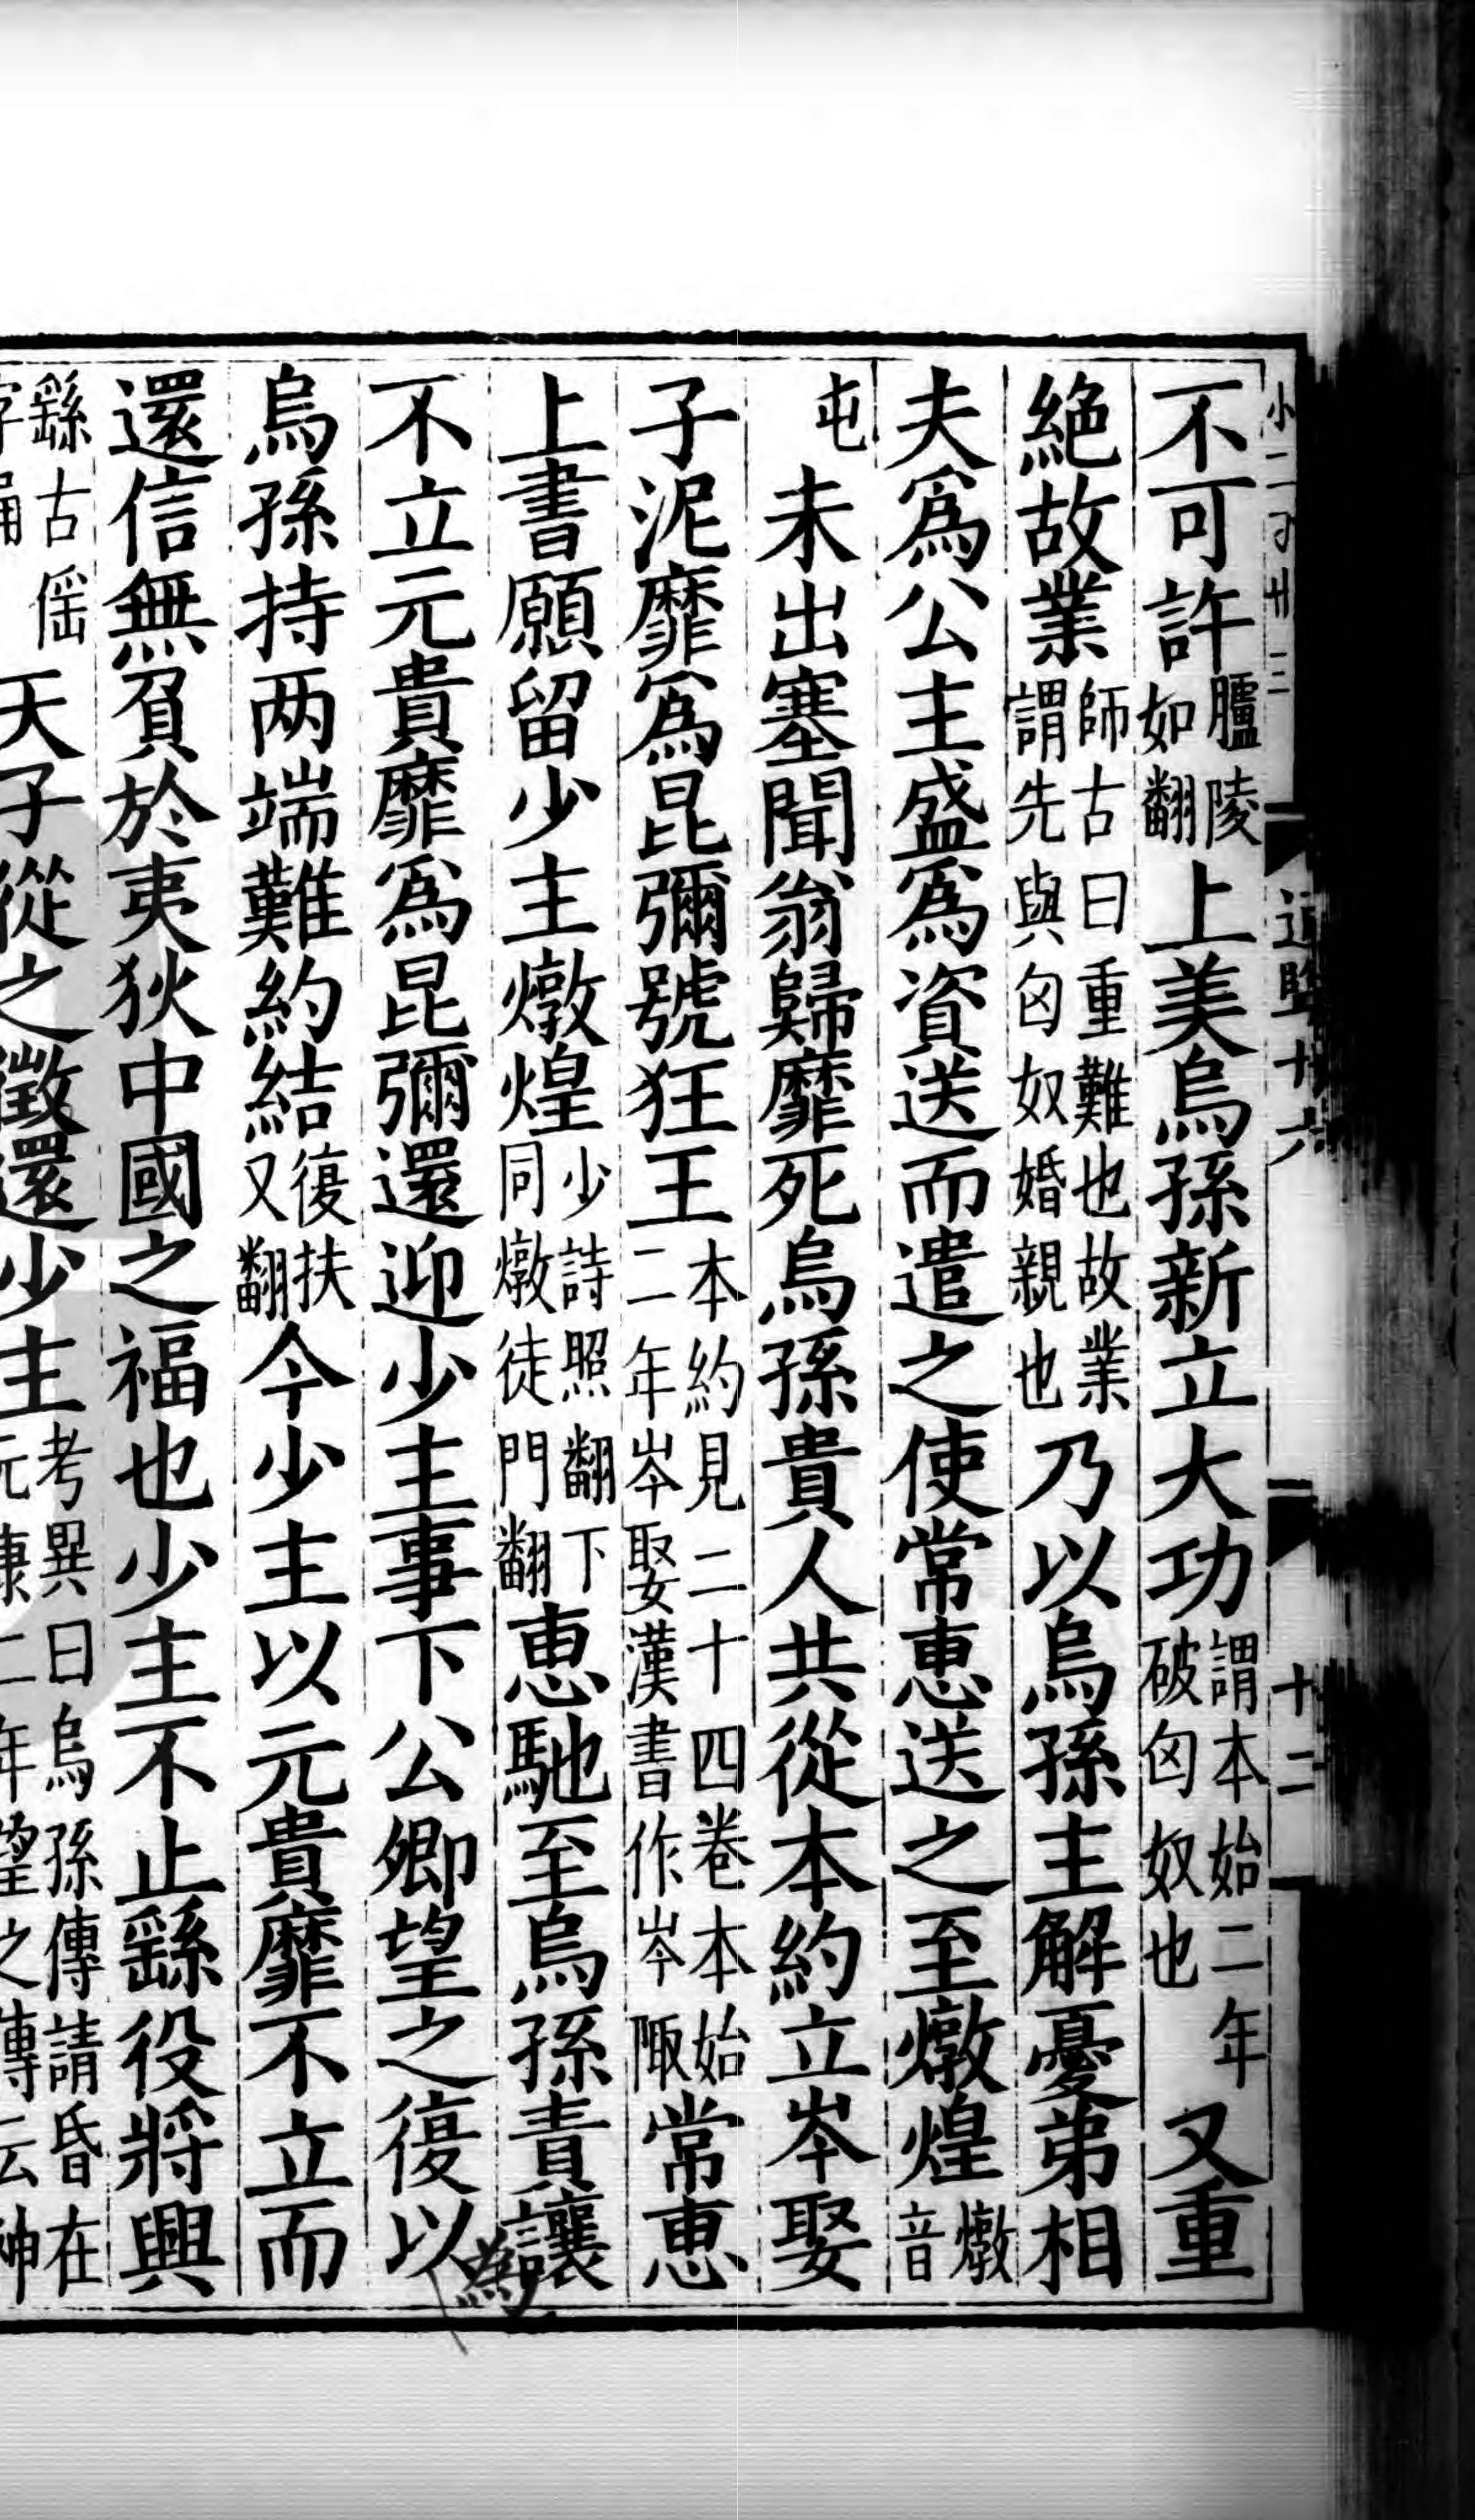 小二百卌三　通鑑十六　十二
不可許臚陵如翻上美烏孫新立大功謂本始二年破匈奴也又重
絕故業師古曰重難也故業謂先與匈奴婚親也乃以烏孫主解憂弟相
夫爲公主盛爲資送而遣之使常惠送之至燉煌燉音
屯未出塞聞翁歸靡死烏孫貴人共從本約立岑娶
子泥靡爲昆彌號狂王本約見二十四卷本始二年岑娶漢書作岑陬常惠
上書願留少主燉煌少詩照翻下同燉徒門翻惠馳至烏孫責讓
不立元貴靡爲昆彌還迎少主事下公卿望之復以
爲
烏孫持两端難約結復扶又翻今少主以元貴靡不立而
還信無負於夷狄中國之福也少主不止繇役將興
繇古傜字通天子從之徵還少主考異曰烏孫傳請昏在元康二年望之傳云神